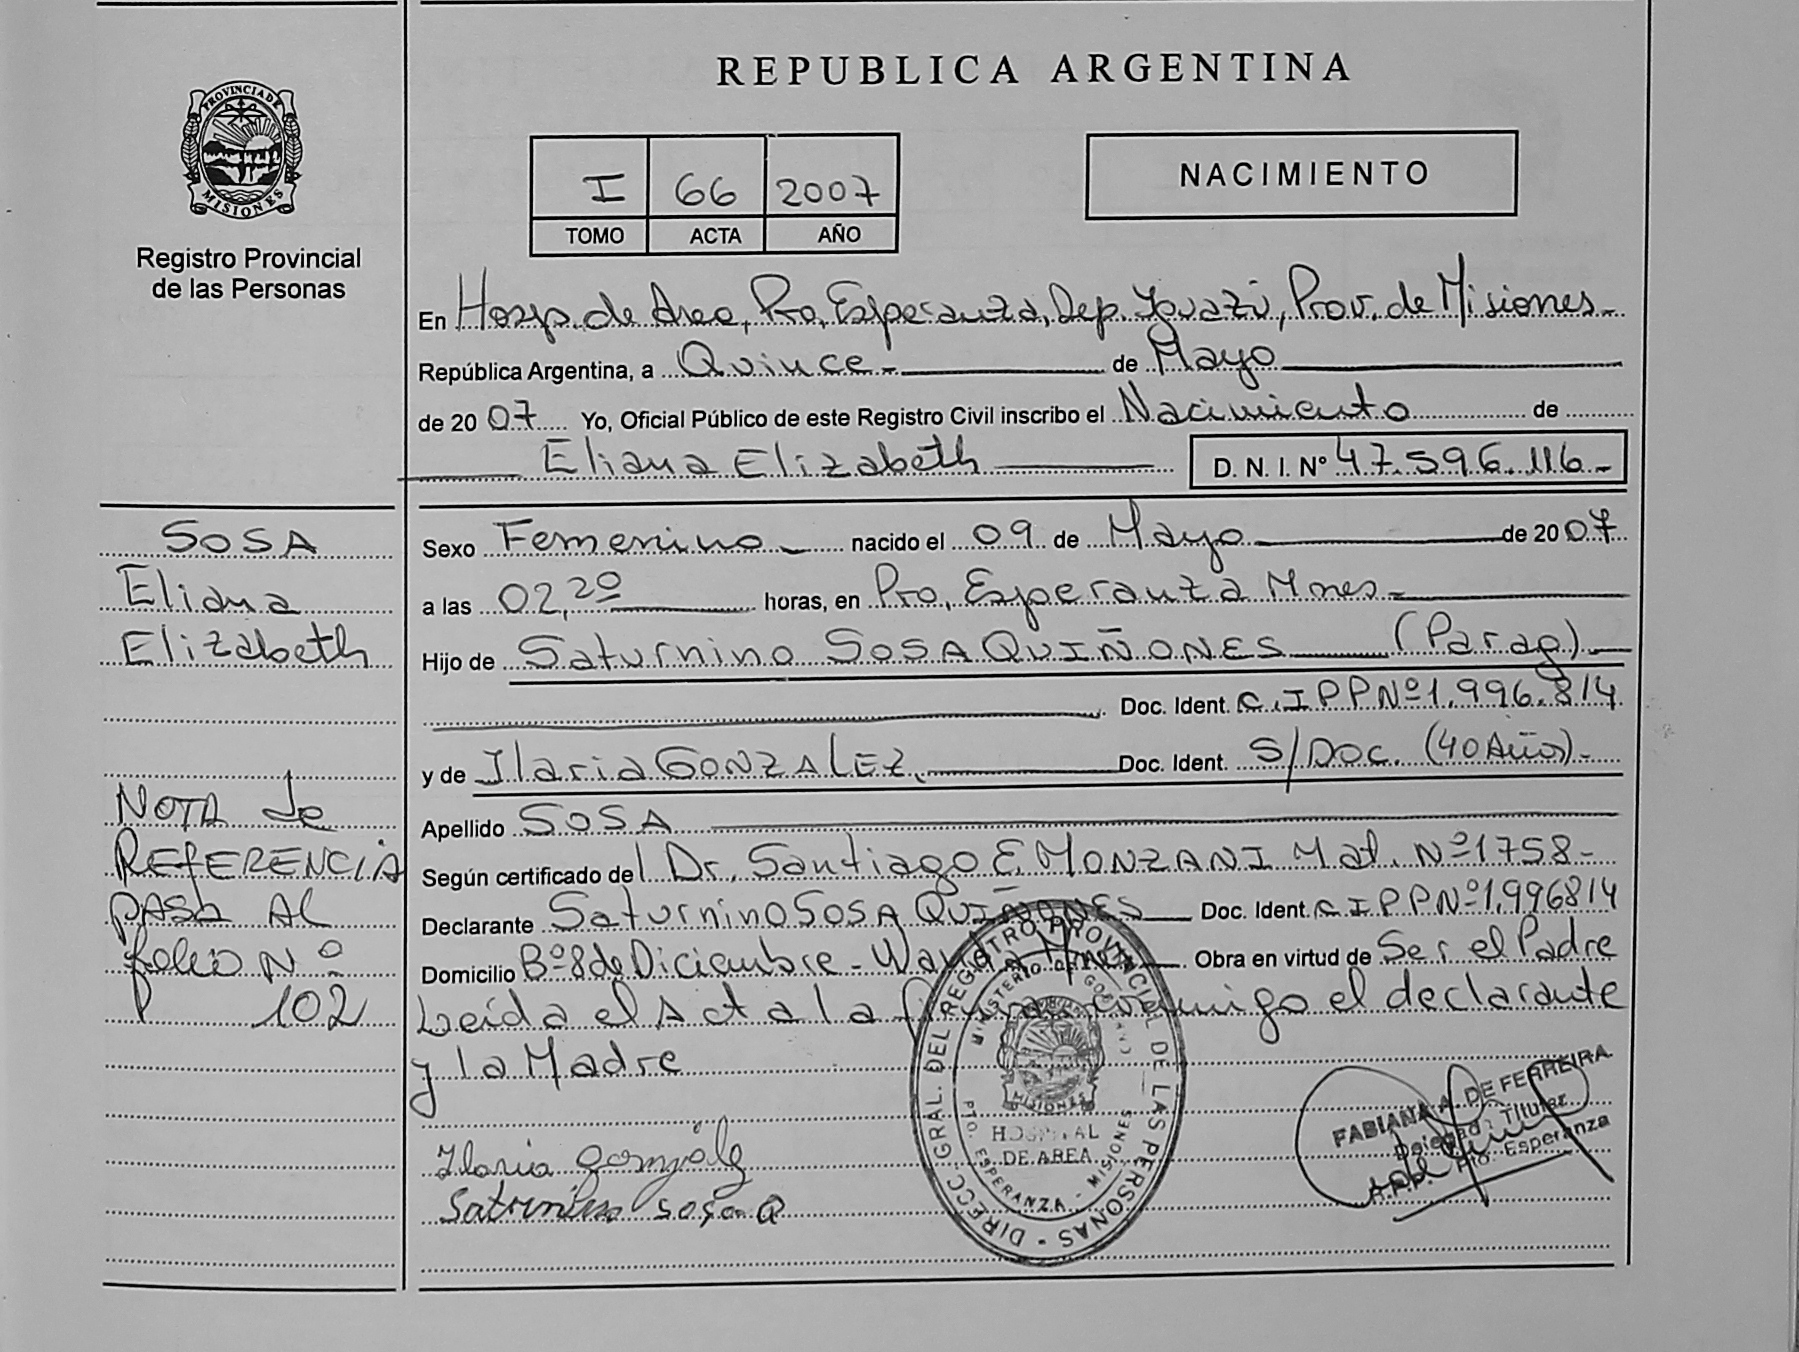 REPUBLICA ARGENTINA
PROVINCIA DE MISIONES
Registro Provincial
de las Personas
I 66 2007
TOMO ACTA AÑO
NACIMIENTO
En Hosp. de Area, Pto, Esperanza, Dep. Iguazú, Prov. de Misiones.-
República Argentina, a Quince.- de Mayo
de 20 07 Yo, Oficial Público de este Registro Civil inscribo el Nacimiento de
Eliana Elizabeth D. N. I. Nº 47.596.116.-
SOSA
Eliana
Elizabeth
NOTA de
REFERENCIA
PASA AL
folio Nº
102
Sexo Femenino nacido el 09 de Mayo de 20 07
a las 02,20 horas, en Pto, Esperanza Mnes.-
Hijo de Saturnino SOSA QUIÑONES (Parag).-
Doc. Ident. C.I P P Nº 1.996.814
y de Ilaria GONZALEZ. Doc. Ident. S/DOC. (40 Años).-
Apellido SOSA
Según certificado del Dr. Santiago E. MONZANI Mat. Nº 1758-
Declarante Saturnino SOSA QUIÑONES Doc. Ident. C I P P Nº 1.996814
Domicilio Bº 8 de Diciembre - Wanda Mnes Obra en virtud de Ser el Padre
Leída el Acta la firman conmigo el declarante
y la Madre
Ilaria Gonzalez
Saturnino sosa Q
DIRECC GRAL. DEL REGISTRO PROVINCIAL DE LAS PERSONAS
MINISTERIO DE GOBIERNO
MISIONES
HOSPITAL
DE AREA
PTO. ESPERANZA - MISIONES
FABIANA A. DE FERREIRA
Delegada Titular
Pto. Esperanza